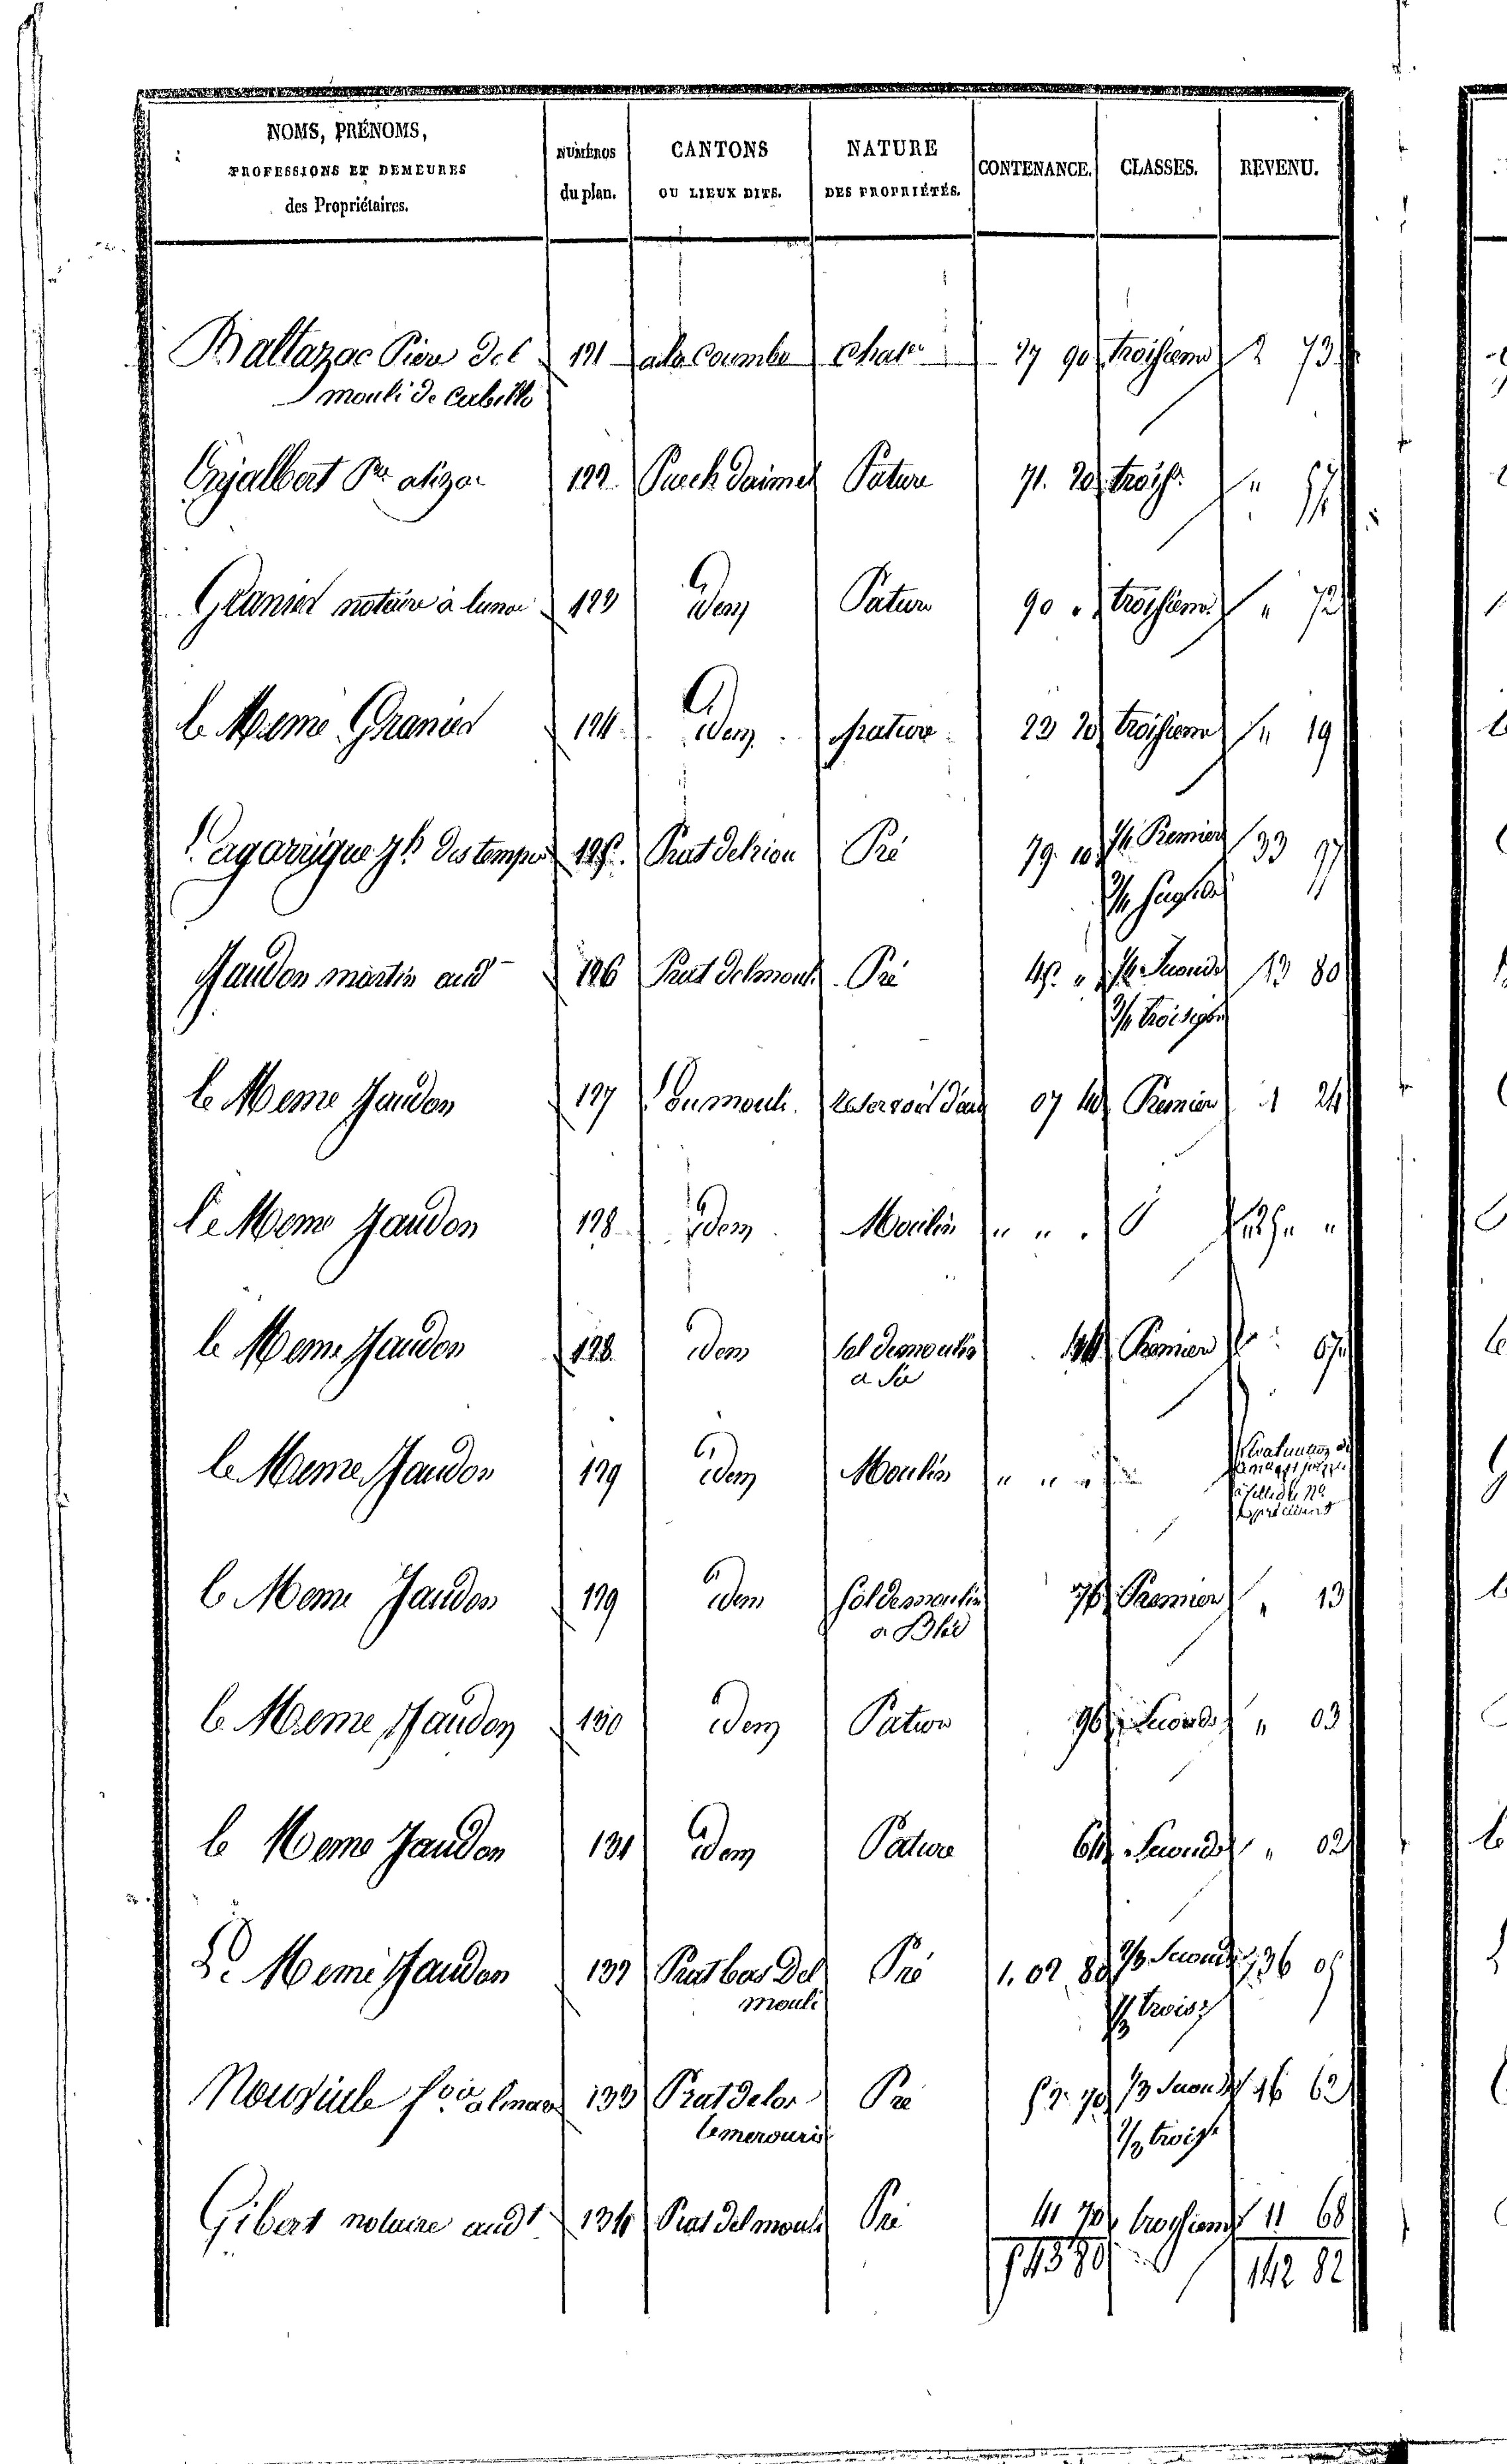 NOMS, PRÉNOMS,
PROFESSIONS ET DEMEURES
des Propriétaires.
NUMÉROS
du plan.
CANTONS
OU LIEUX DITS.
NATURE
DES PROPRIÉTÉS.
CONTENANCE.
CLASSES.
REVENU.
Baltazac Piere Del 121 a la Coumbe Chatr 27 90 troisieme 2 73
mouli de
122 Puech daimet Pature 71. 20 trois. " 57
Granier notaire à 123 idem Pature 90 " troisieme " 72
le Meme Granier 124 idem pature 23 20 troisieme " 19
Lagarrigue 125. Prat Pré 79. 10 1/4 Premiere 33 97
3/4
Jaudon martin aud 126 Prat Delmouli Pré 45. " 1/4 Seconde 13 80
3/4 troisieme
le Meme Jaudon 127 Lou mouli. Reservoir deau 07 40 Premiere 1 24
Le Meme Jaudon 128 idem Moulin " "
le Meme Jaudon 128 idem Sol de moulin Premiere 07
a Sie
le Meme Jaudon 129 idem Moulin " "
le Meme Jaudon 129 idem Sol de moulin 76 Premiere " 13
a Bled
le Meme Jaudon 130 idem Pature 96 Seconde " 03
le Meme Jaudon 131 idem Pature 64 Seconde " 02
Le Meme Jaudon 132 Prat bas Del Pré 1. 02 80 2/3 Seconde 36 05
mouli 1/3 trois
133 Prat de los Pré 52. 70 1/3 Seconde 16 62
2/3 trois
Gibert notaire audt 134 Prat del mouli Pré 41 70 troisieme 11 68
5 43 80 142 82